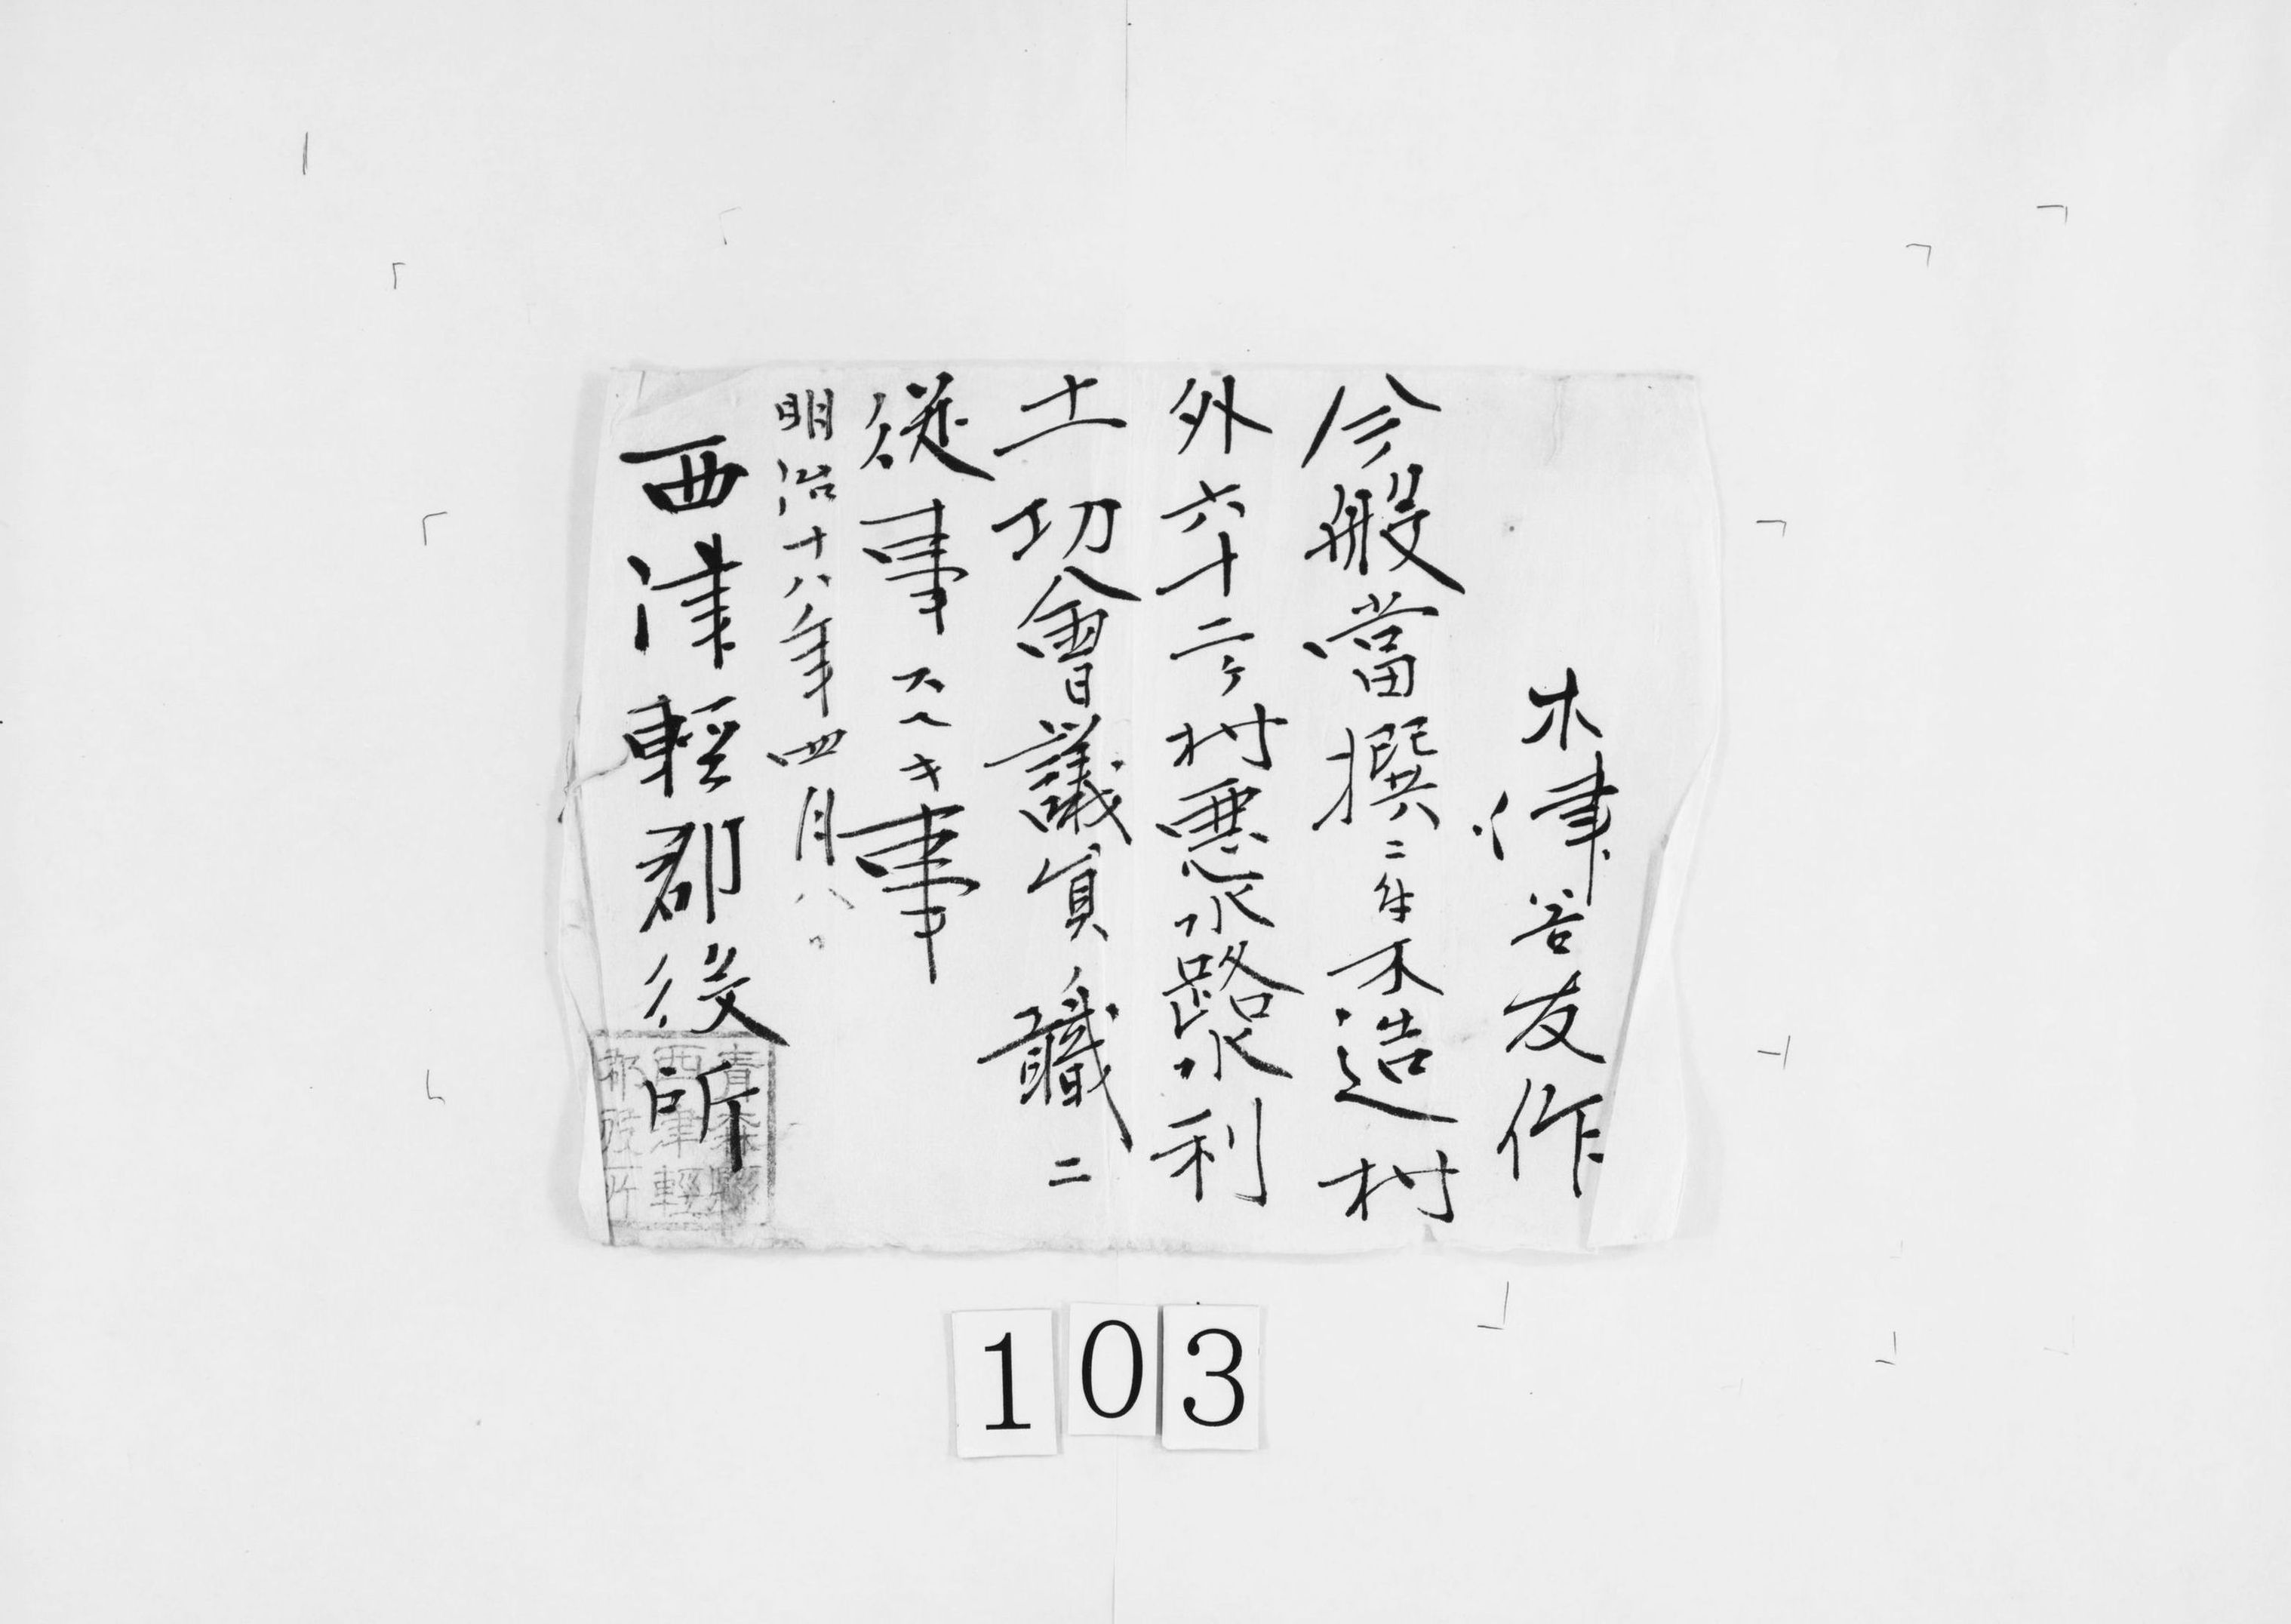 木津谷友作
今般當撰ニ付木造村
外六十二ヶ村悪水路水利
土功會議員ノ職ニ
従事スヘキ事
明治十八年四月八日
西津軽郡役所
青森縣
西津輕
郡役所
103